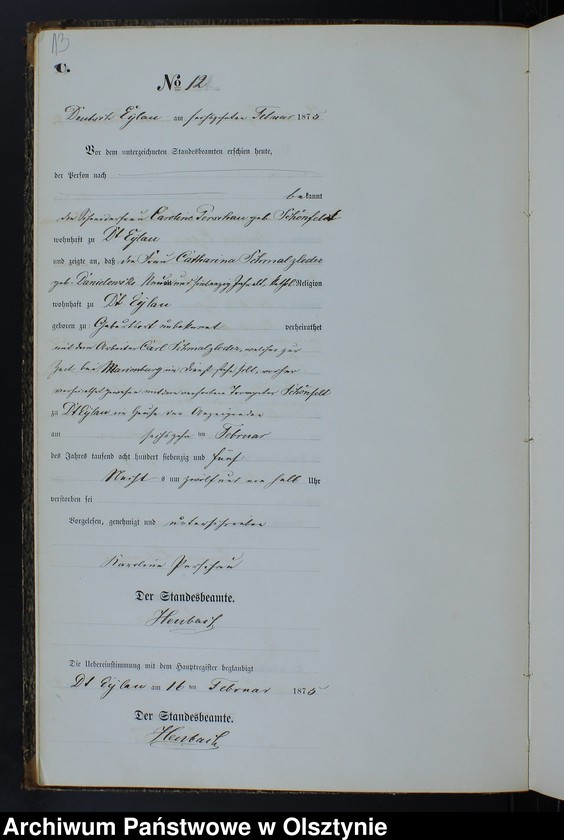 13
C.
No 12
Deutsch Eylau am sechszehnten Februar 1875
Vor dem unterzeichneten Standesbeamten erschien heute,
der Person nach
bekannt
die Schneiderfrau Caroline geb. Schönfeldt
wohnhaft zu Dt Eylau
und zeigte an, daß die Frau Catharina Schmalzleder
geb. Danielowski Neun und siebenzig Jahr alt, kathol. Religion
wohnhaft zu Dt Eylau
geboren zu Geburtsort unbekannt verheirathet
mit dem Arbeiter Carl Schmalzleder, welcher zur
Zeit bei Marienburg im Dienst sein soll, vorher
verheirathet gewesen mit dem verstorbenen Schönfeldt
zu Dt Eylau im Hause der Anzeigenden
am sechszehn ten Februar
des Jahres tausend acht hundert siebenzig und fünf
Nachts um zwölf und ein halb Uhr
verstorben sei
Vorgelesen, genehmigt und unterschrieben
Karoline
Der Standesbeamte.
Heubach
Die Uebereinstimmung mit dem Hauptregister beglaubigt
Dt Eylau am 16 ten Februar 1875
Der Standesbeamte.
Heubach
Archiwum Państwowe w Olsztynie